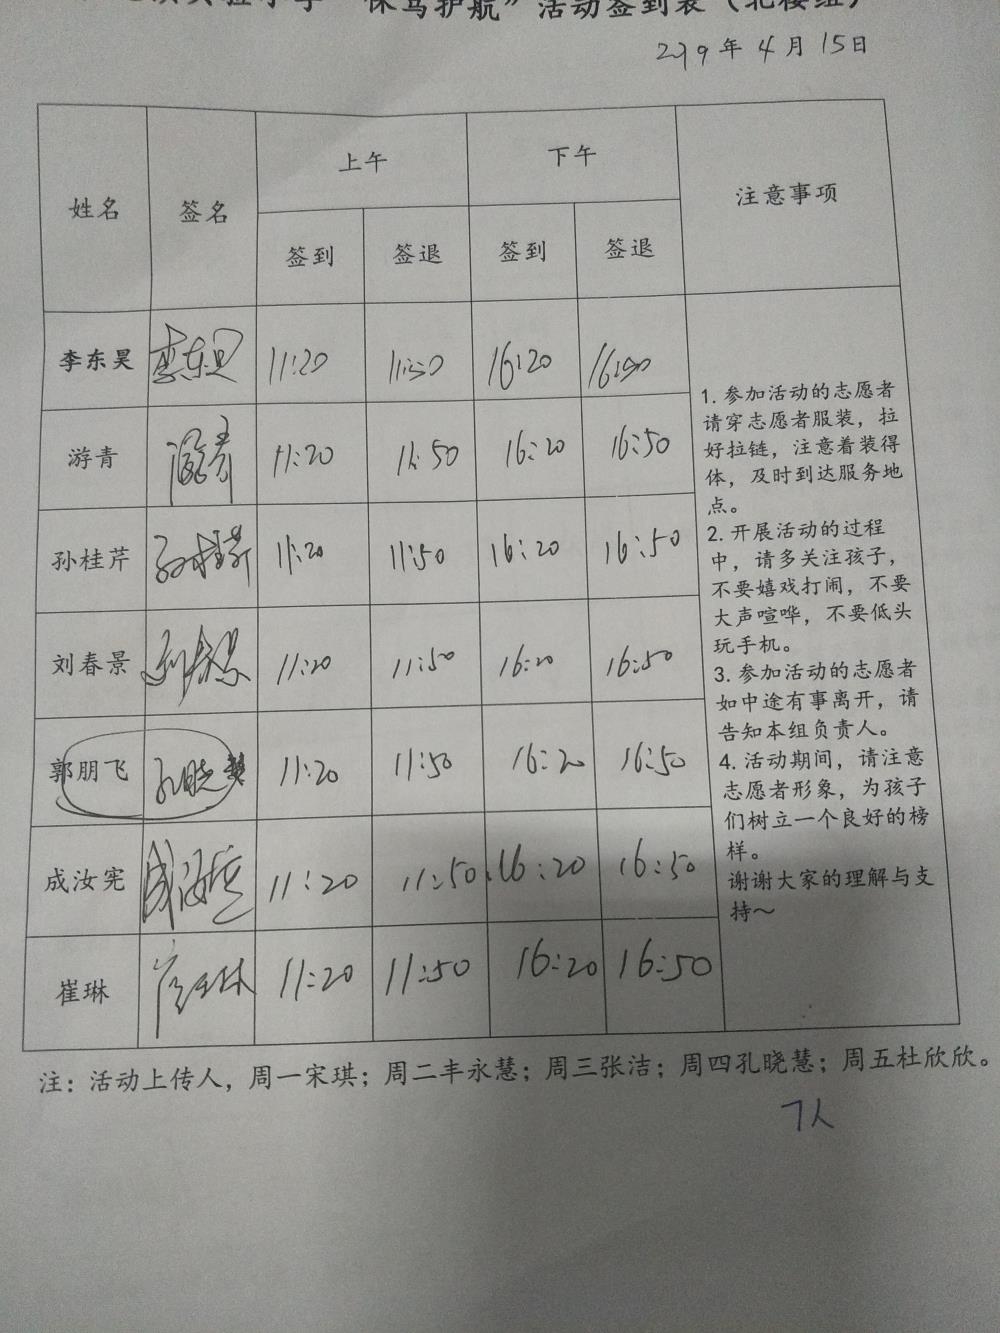 “保驾护航”活动签到表（北楼组）
2019年4月15日
姓名 签名 上午 下午 注意事项
签到 签退 签到 签退
李东昊 李东昊 11:20 11:50 16:20 16:50
游青 游青 11:20 11:50 16:20 16:50
孙桂芹 孙桂芹 11:20 11:50 16:20 16:50
刘春景 刘春景 11:20 11:50 16:20 16:50
郭朋飞 孔晓慧 11:20 11:50 16:20 16:50
成汝宪 成汝宪 11:20 11:50 16:20 16:50
崔琳 崔琳 11:20 11:50 16:20 16:50
1. 参加活动的志愿者
请穿志愿者服装，拉
好拉链，注意着装得
体，及时到达服务地
点。
2. 开展活动的过程
中，请多关注孩子，
不要嬉戏打闹，不要
大声喧哗，不要低头
玩手机。
3. 参加活动的志愿者
如中途有事离开，请
告知本组负责人。
4. 活动期间，请注意
志愿者形象，为孩子
们树立一个良好的榜
样。
谢谢大家的理解与支
持～
注：活动上传人，周一宋琪；周二丰永慧；周三张洁；周四孔晓慧；周五杜欣欣。
7人